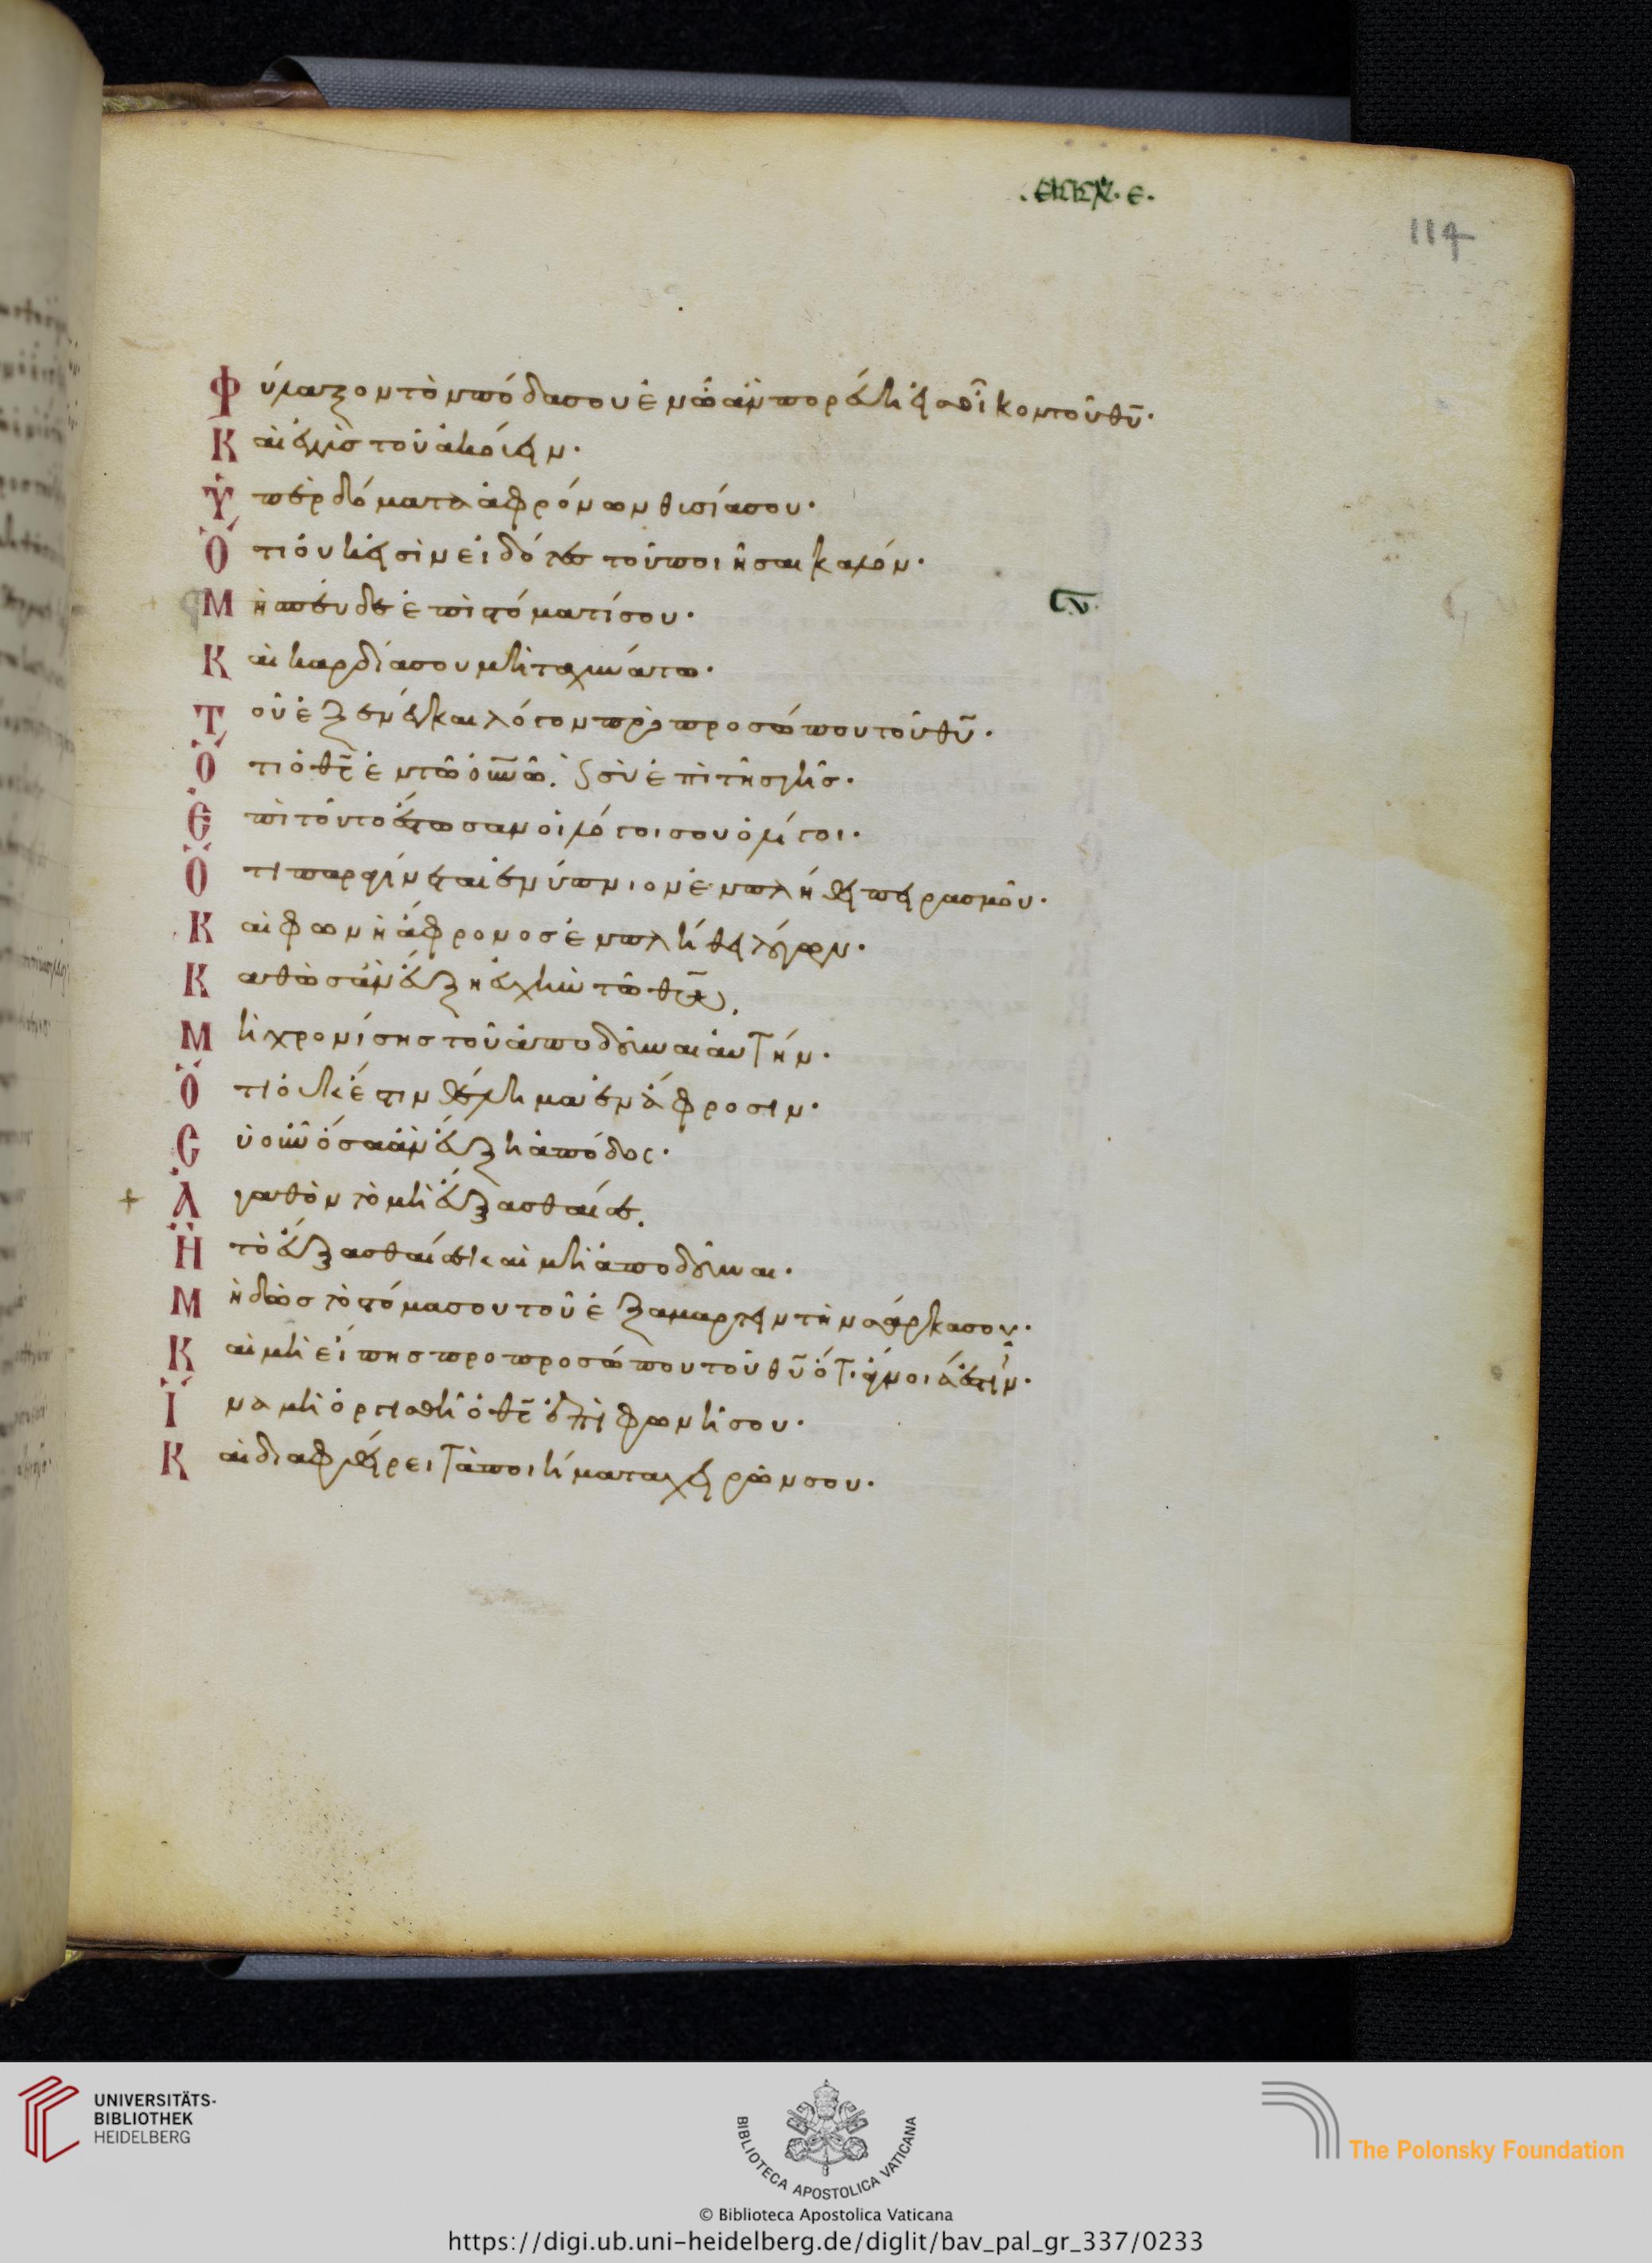 .ἐκκλ. ε.
114
Φύλαξον τὸν πόδα σου ἐν ᾧ ἂν πορεύῃ εἰς οἶκον τοῦ θυ̅·
Καὶ ἐγγὺς τοῦ ἀκούειν·
Ὑπὲρ δόματα ἀφρόνων θυσία σου·
Ὅτι οὐκ εἰσὶν εἰδότες τοῦ ποιῆσαι καλόν·
Μὴ σπεῦδε ἐπὶ στόματί σου·
Καὶ καρδία σου μὴ ταχυνάτω·
Τοῦ ἐξενέγκαι λόγον πρὸ προσώπου τοῦ θυ̅·
Ὅτι ὁ θς̅ ἐν τῶ ουνω̅. καὶ σὺ ἐπὶ τῆς γῆς·
Ἐπὶ τούτο ἔστωσαν οἱ λόγοι σου ὀλίγοι·
Ὅτι παραγίνεται ἐνύπνιον ἐν πλήθει πειρασμοῦ·
Καὶ φωνὴ ἄφρονος ἐν πλήθει λόγων·
Καθὼς ἂν εὔξῃ εὐχὴν τῶ θω̅.
Μὴ χρονίσῃς τοῦ ἀποδοῦναι αὐτήν·
Ὅτι οὐκ ἔστιν θέλημα ἐν ἄφροσιν·
Σὺ οὖν ὅσα ἂν εὔξῃ ἀπόδος·
Ἀγαθὸν τὸ μὴ εὔξασθαί σε.
Ἢ τὸ εὔξασθαί σε καὶ μὴ ἀποδοῦναι·
Μὴ δῶς τὸ στόμα σου τοῦ ἐξαμαρτεῖν τὴν σάρκα σου·
Καὶ μὴ εἴπῃς προ προσώπου τοῦ θυ̅ ὅτι ἄγνοιά ἐστιν·
Ἵνα μὴ ὀργισθῆ ὁ θς̅ ἐπὶ φωνῆ σου·
Καὶ διαφθείρει τὰ ποιήματα χειρῶν σου·
UNIVERSITÄTS-
BIBLIOTHEK
HEIDELBERG
BIBLIOTECA APOSTOLICA VATICANA
The Polonsky Foundation
© Biblioteca Apostolica Vaticana
https://digi.ub.uni-heidelberg.de/diglit/bav_pal_gr_337/0233